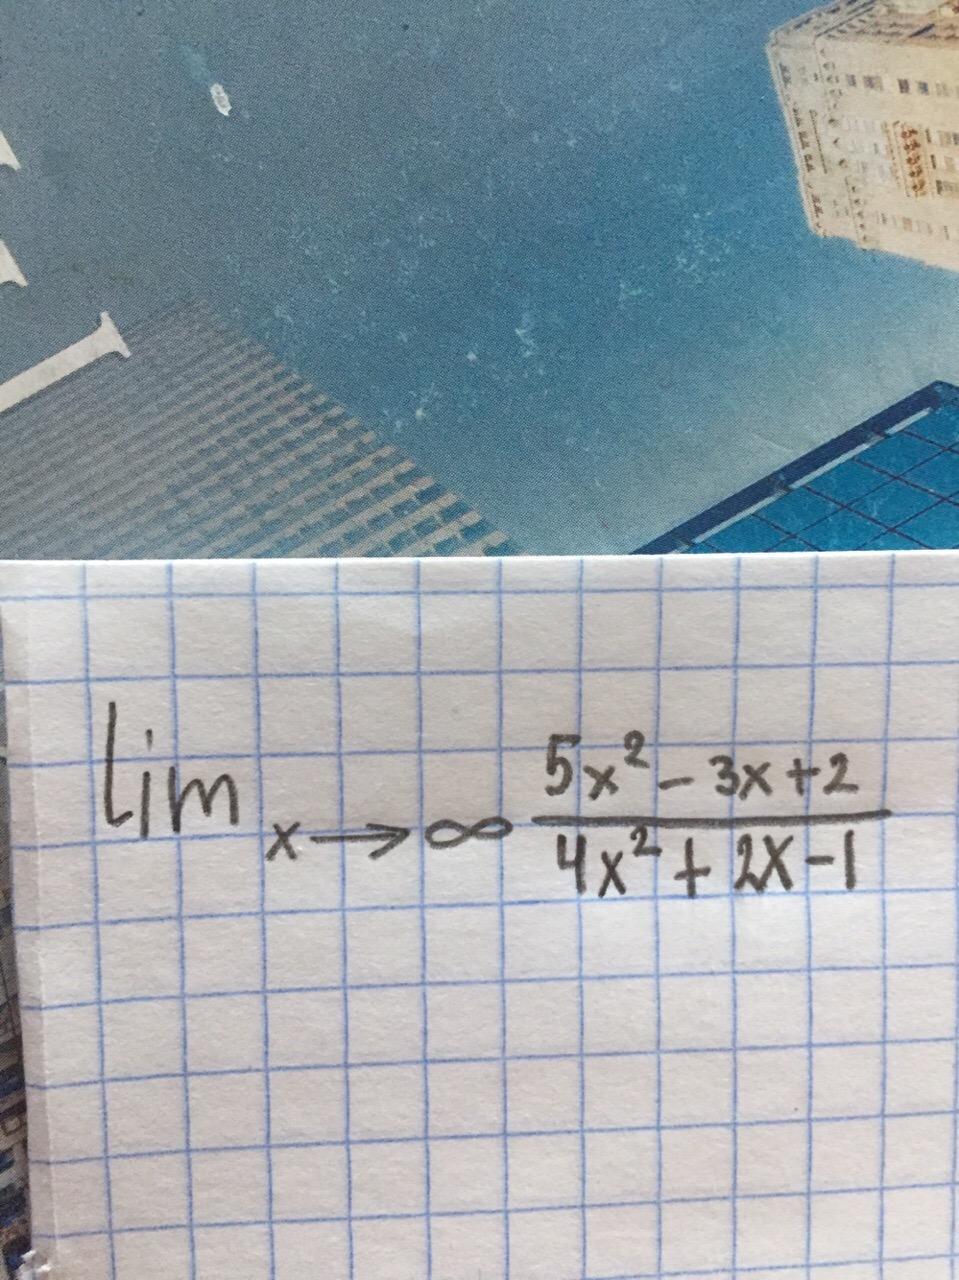 lim x→∞ (5x² - 3x + 2)/(4x² + 2x - 1)